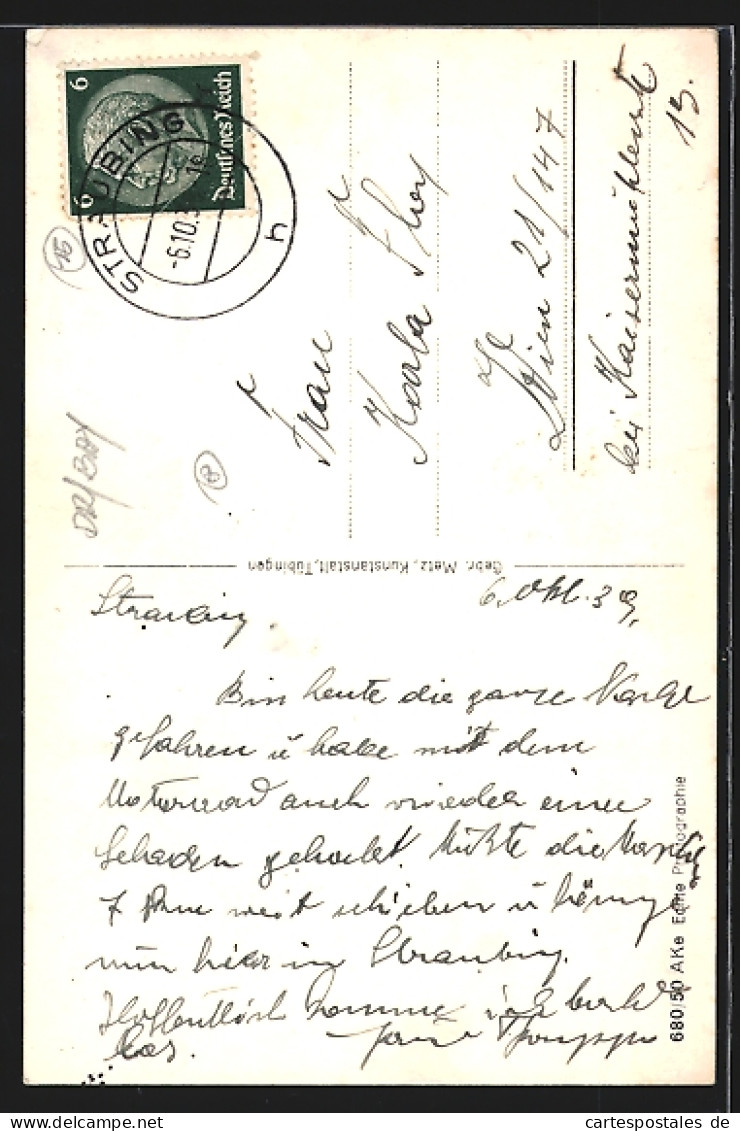 6
6
Deutsches Reich
STRAUBING
-6.10.3
h
15
8
DR/BAY
Frau
Karla
Wien 21/147
bei Kaisermühlenstr
13.
Gebr. Metz, Kunstanstalt, Tübingen
Straubing.
6. Okt. 39.
Bin heute die ganze
gefahren u habe mit dem
Motorrad auch wieder einen
Schaden gehabt. Mußte die
7 km weit schieben u hänge
nun hier in Straubing.
Hoffentlich komme ich bald
los.
680/50 AKe Echte Photographie
cartespostales de